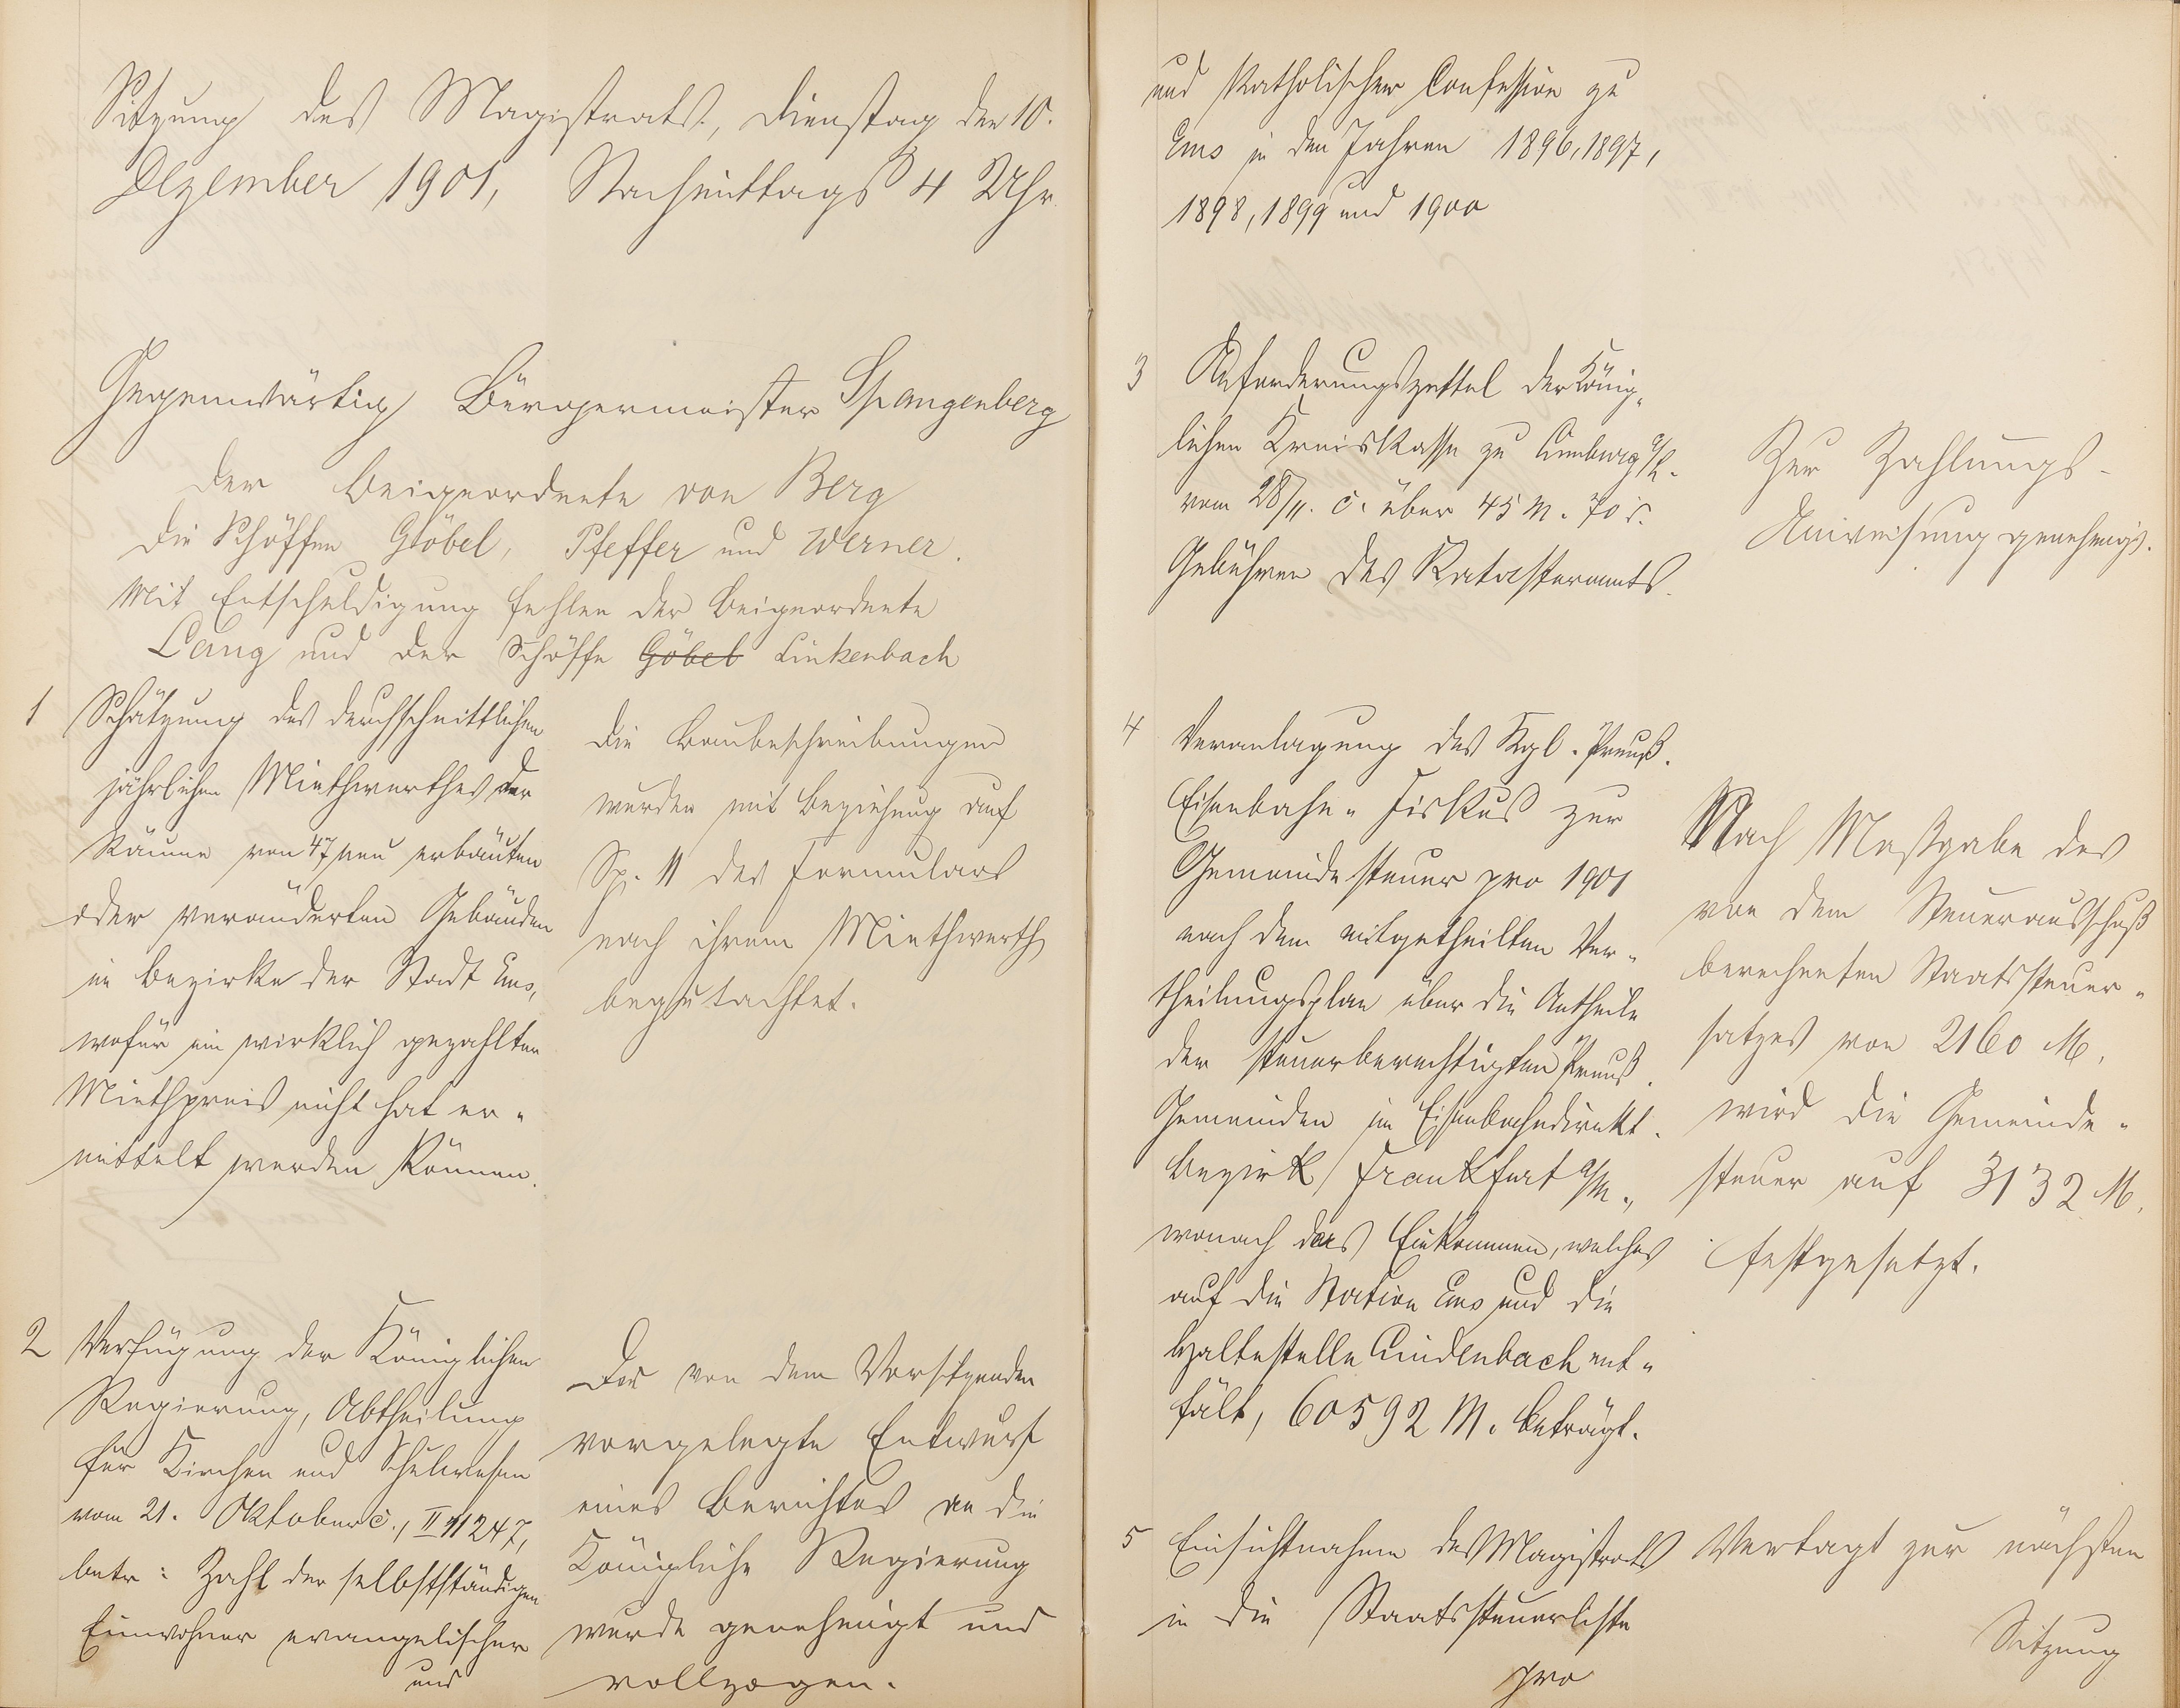 Sitzung des Magistrats, Dienstag den 10.
Dezember 1901, Nachmittags 4 Uhr.
Gegenwärtig Bürgermeister Spangenberg
der Beigeordnete von Berg
die Schöffen Göbel, Pfeffer und Werner.
Mit Entschuldigung fehlen der Beigeordnete
Lang und der Schöffe Göbel Linkenbach
1 Schätzung des durchschnittlichen
jährlichen Miethwerthes der
Räume von 47 neu erbauten
oder veränderten Gebäuden
im Bezirke der Stadt Ems,
wofür ein wirklich gezahlter
Miethpreis nicht hat er-
mittelt werden können.
Die Baubeschreibungen
wurden mit Beziehung auf
Sp. 11 des Formulars
nach ihrem Miethwerth
begutachtet.
2 Verfügung der Königlichen
Regierung, Abtheilung
für Kirchen und Schulwesen
vom 21. Oktober c., II 11247,
betr: Zahl der selbstständigen
Einwohner evangelischer
und
Der von dem Vorsitzenden
vorgelegte Entwurf
eines Berichtes an die
Königliche Regierung
wurde genehmigt und
vollzogen.
und katholischer Confession zu
Ems in den Jahren 1896, 1897,
1898, 1899 und 1900
3 Anforderungszettel der König-
lichen Kreiskasse zu Limburg a/L.
vom 28/11. c. über 45 M. 70 .
Gebühren des Katasteramts.
Zur Zahlungs-
Anweisung genehmigt.
4 Veranlagung des Kgl. Preuß.
Eisenbahn-Fiskus zur
Gemeindesteuer pro 1901
nach dem mitgetheilten Ver-
theilungsplan über die Antheile
der steuerberechtigten Preuß.
Gemeinden im Eisenbahndirekt.
Bezirk Frankfurt a/M.,
wonach das Einkommen, welches
auf die Station Ems und die
Haltestelle Lindenbach ent-
fält, 60592 M. beträgt.
Nach Maßgabe des
von dem Steuerausschuß
berechneten Staatssteuer-
satzes von 2160 M.
wird die Gemeinde-
steuer auf 3132 M.
festgesetzt.
5 Einsichtnahme des Magistrats
in die Staatssteuerliste
pro
Vertagt zur nächsten
Sitzung